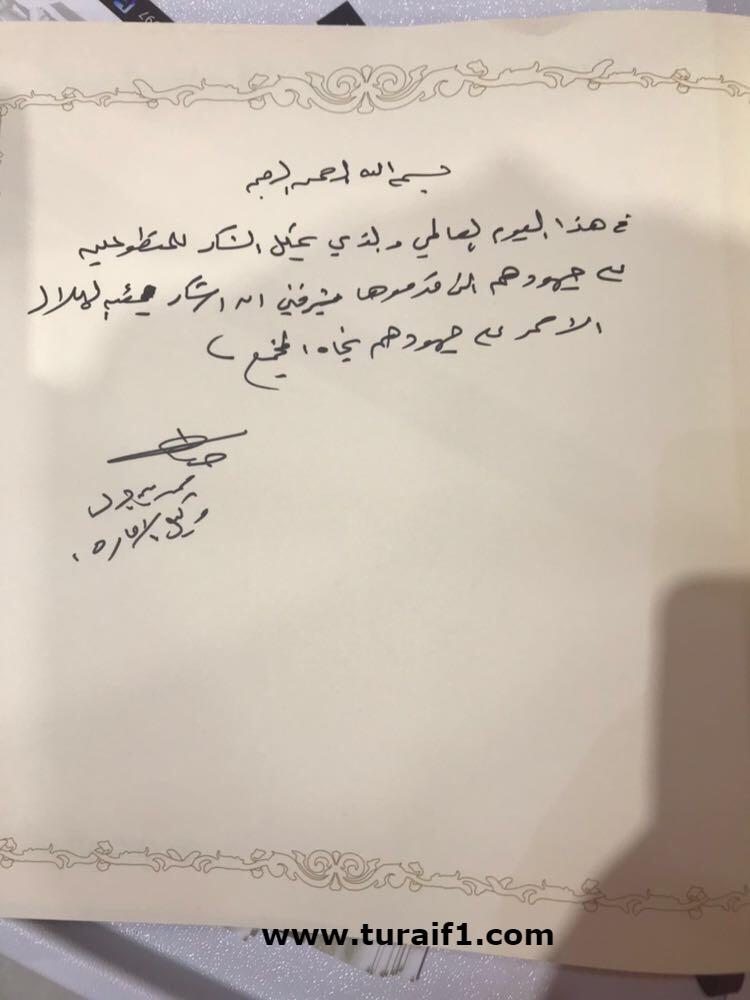 بسم الله الرحمن الرحيم
في هذا اليوم العالمي والذي يمثل الشكر للمتطوعين
على جهودهم التي قدموها يشرفني ان اشكر هيئة الهلال
الاحمر على جهودهم تجاه المجتمع
وكيل الامارة
www.turaif1.com